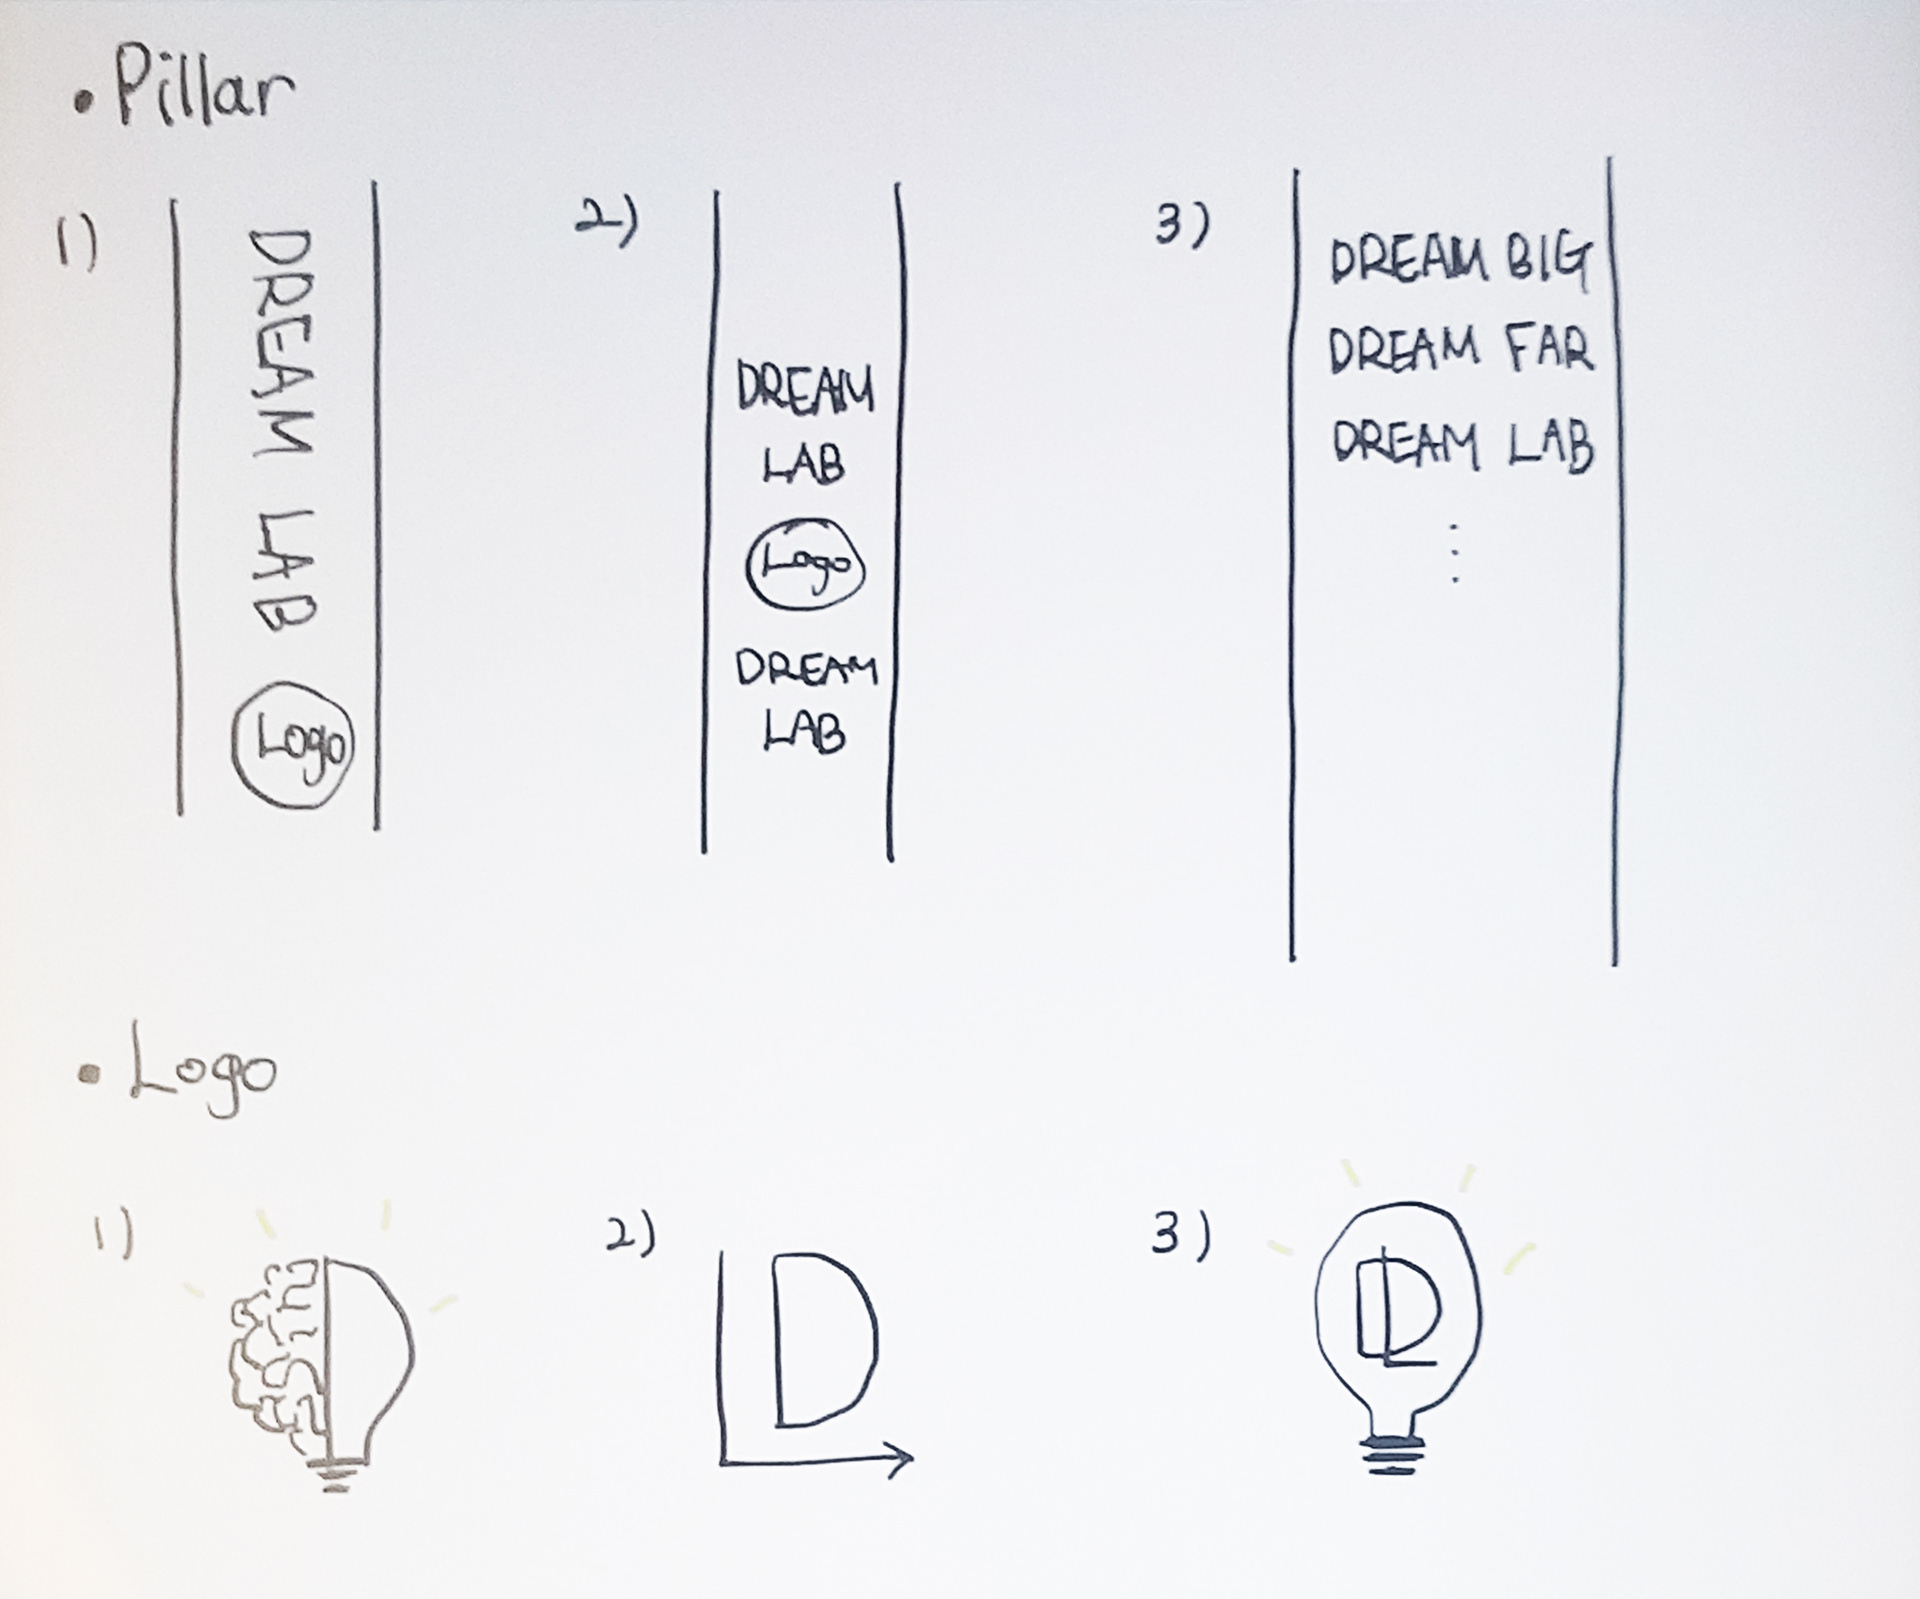 • Pillar
1)
DREAM LAB
Logo
2)
DREAM
LAB
Logo
DREAM
LAB
3)
DREAM BIG
DREAM FAR
DREAM LAB
⋮
• Logo
1)
2)
LD
3)
DL